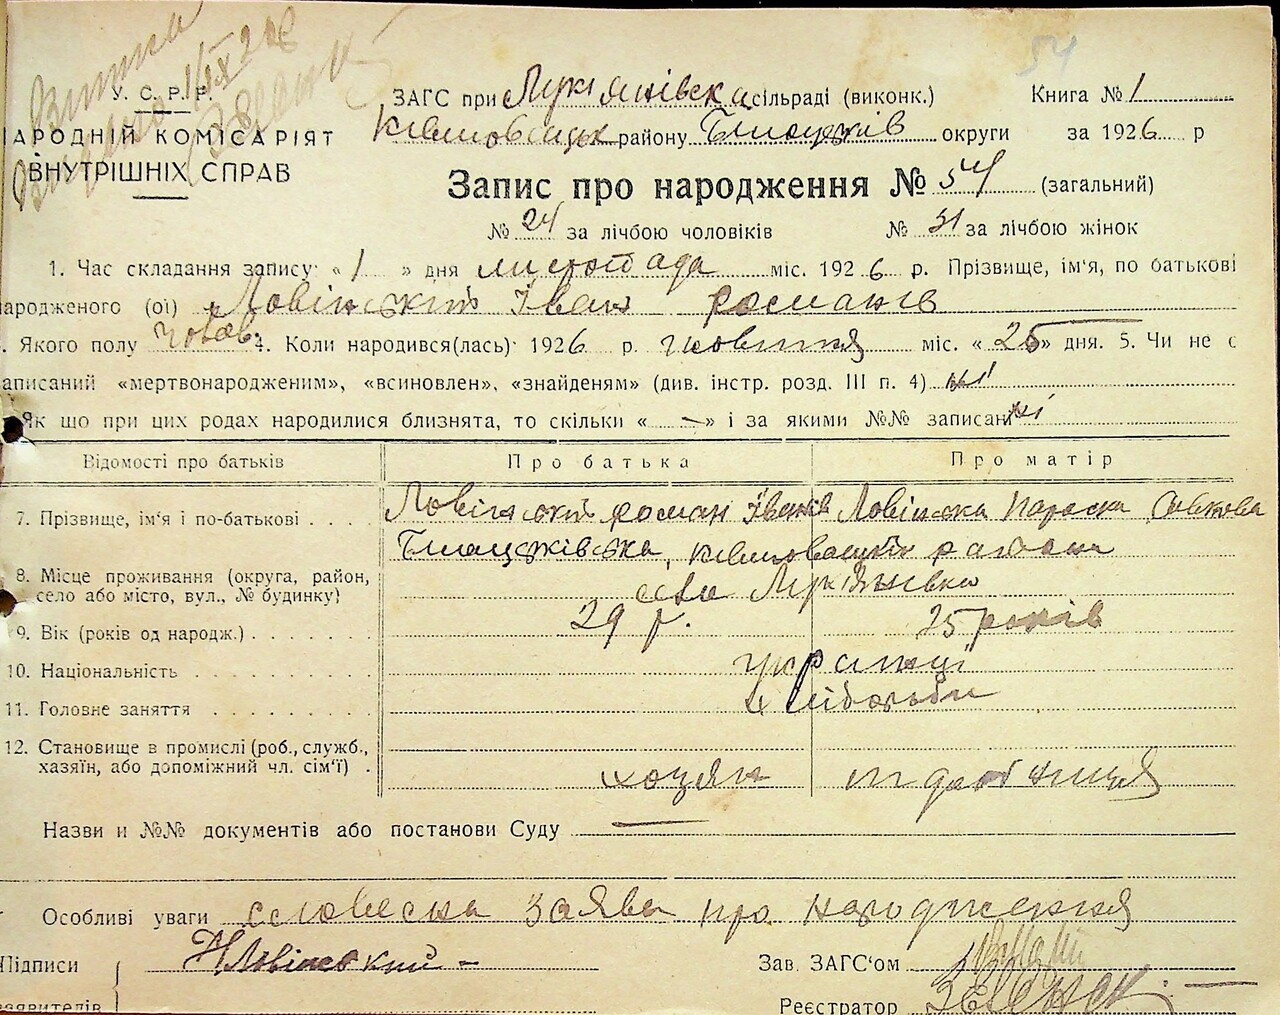 54
У. С. Р. Р.
НАРОДНІЙ КОМІСАРІЯТ
ВНУТРІШНІХ СПРАВ
ЗАГС при Лукіянівска сільраді (виконк.) Книга № 1
району округи за 1926 р
Запис про народження № 54 (загальний)
№ 24 за лічбою чоловіків № 31 за лічбою жінок
1. Час складання запису: « 1 » дня листопада міс. 1926 р. Прізвище, ім'я, по батькові
народженого (ої) Ловінський Іван Романів
. Якого полу чолов. 4. Коли народився(лась) 1926 р. жовтня міс. « 25 » дня. 5. Чи не є
записаний «мертвонародженим», «всиновлен», «знайденям» (див. інстр. розд. III п. 4) ні
Як що при цих родах народилися близнята, то скільки « — » і за якими №№ записані ні
Відомості про батьків Про батька Про матір
7. Прізвище, ім'я і по-батькові Ловінский Роман Іванів Ловінска Параска Савкова
8. Місце проживання (округа, район, село або місто, вул., № будинку) района
село Лукіянівка
9. Вік (років од народж.) 29 р. 25 років
10. Національність українці
11. Головне заняття хліборобы
12. Становище в промислі (роб., служб., хазяїн, або допоміжний чл. сім'ї) хозяїн
Назви и №№ документів або постанови Суду —
Особливі уваги словесна заява про народження
Підписи Ловінський - Зав. ЗАГС'ом
заявителів Реєстратор